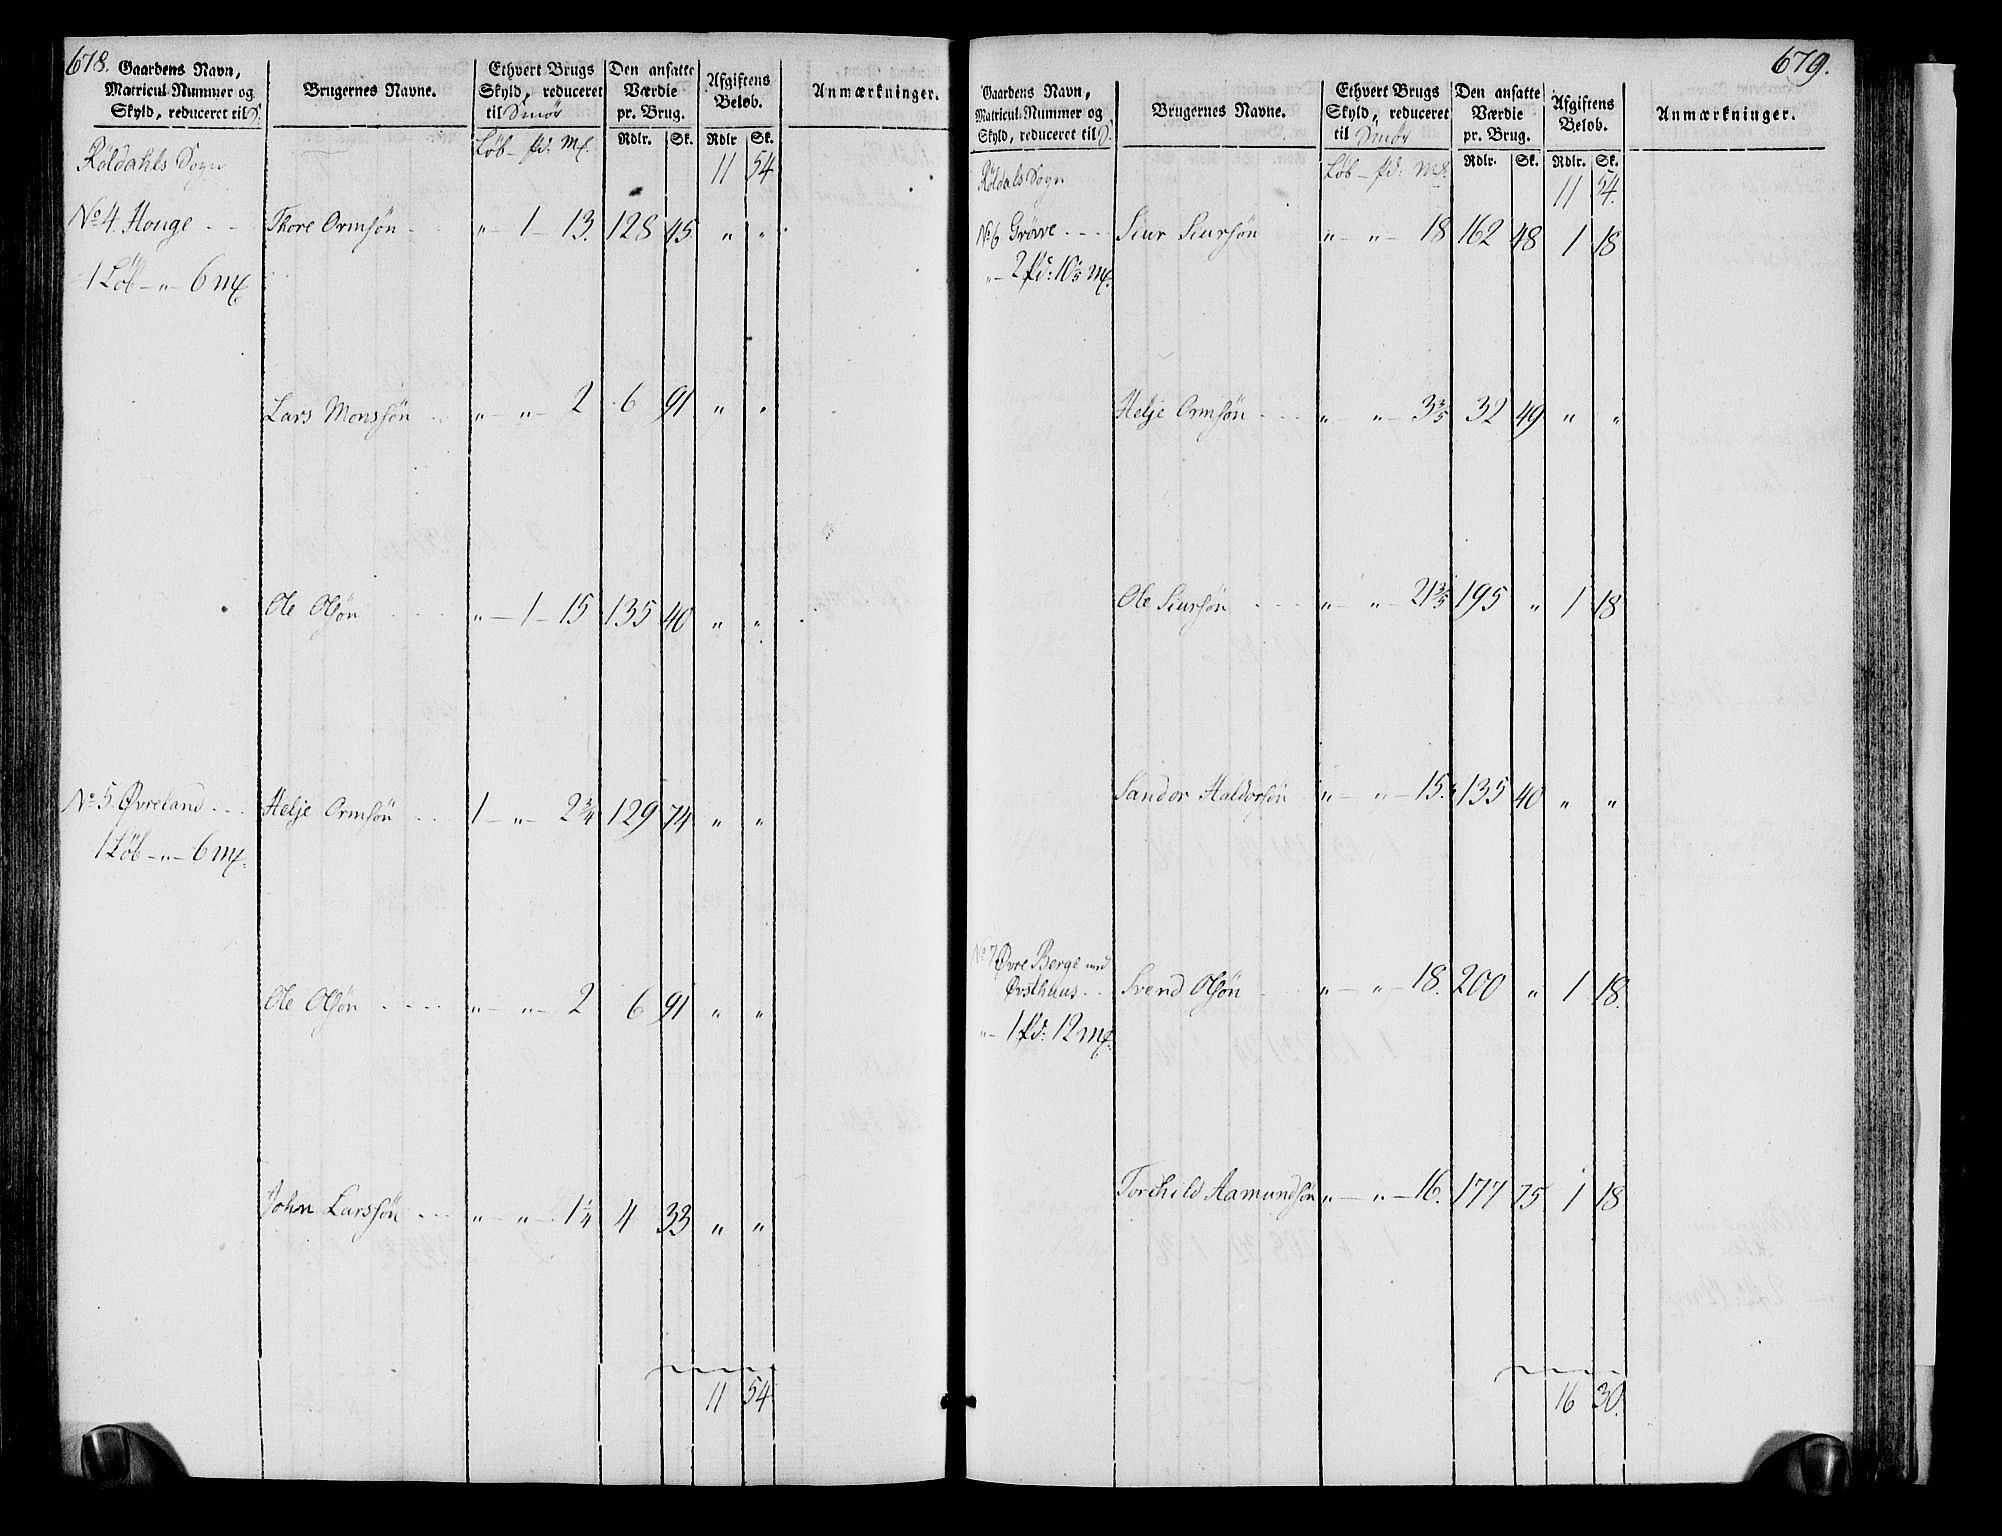 678.
Gaardens Navn, Matricul-Nummer og Skyld, reduceret til S. | Brugernes Navne. | Ethvert Brugs Skyld, reduceret til Smør | Den ansatte Værdie pr. Brug. | Afgiftens Beløb. | Anmærkninger.
Løb - pd: mf. | Rdlr. | Sk. | Rdlr | Sk.
Röldahls Sogn | 11 | 54
No 4. Houge - - | Thore Ormsön - | „ - 1 - 13. | 128 | 45 | „ | „
1 Löb - „ - 6 mf.
Lars Monssön - - | „ - „ - 2 | 6 | 91 | „ | „
Ole Olsön | „ - 1 - 15 | 135 | 40 | „ | „
No 5. Øvreland - - - | Helje Ormsön - - | 1 - „ - 2 3/4 | 129 | 74 | „ | „
1 Löb - „ - 6 mf.
Ole Olsön - - - - | „ - „ - 2 | 6 | 91 | „ | „
John Larssön - - - | „ - „ - 1 1/4 | 4 | 33 | „ | „
11 | 54
679.
Gaardens Navn, Matricul-Nummer og Skyld, reduceret til S. | Brugernes Navne. | Ethvert Brugs Skyld, reduceret til Smör | Den ansatte Værdie pr. Brug. | Afgiftens Beløb. | Anmærkninger.
Løb - pd: mf. | Rdlr. | Sk. | Rdlr. | Sk.
Röldals Sogn | 11 | 54.
No 6 Grövve - - - | Siur Siursön | „ - „ - 18 | 162 | 48 | 1 | 18
„ - 2 pd: 10 1/5 mf.
Helje Ormsön - - - | „ „ - 3 3/5 | 32 | 49 | „ | „
Ole Siursön - - - | „ - „ - 21 3/5 | 195 | „ | 1 | 18
Sandor Haldorsön | „ - „ - 15. | 135 | 40 | „ | „
No 7 Øvre Berge med
Øvsthuus - - | Svend Olsön | „ - „ - 18. | 200 | „ | 1 | 18.
„ - 1 pd: 12 mf.
Torchild Aamundsön | „ - „ - 16. | 177 | 75 | 1 | 18
16 | 30.